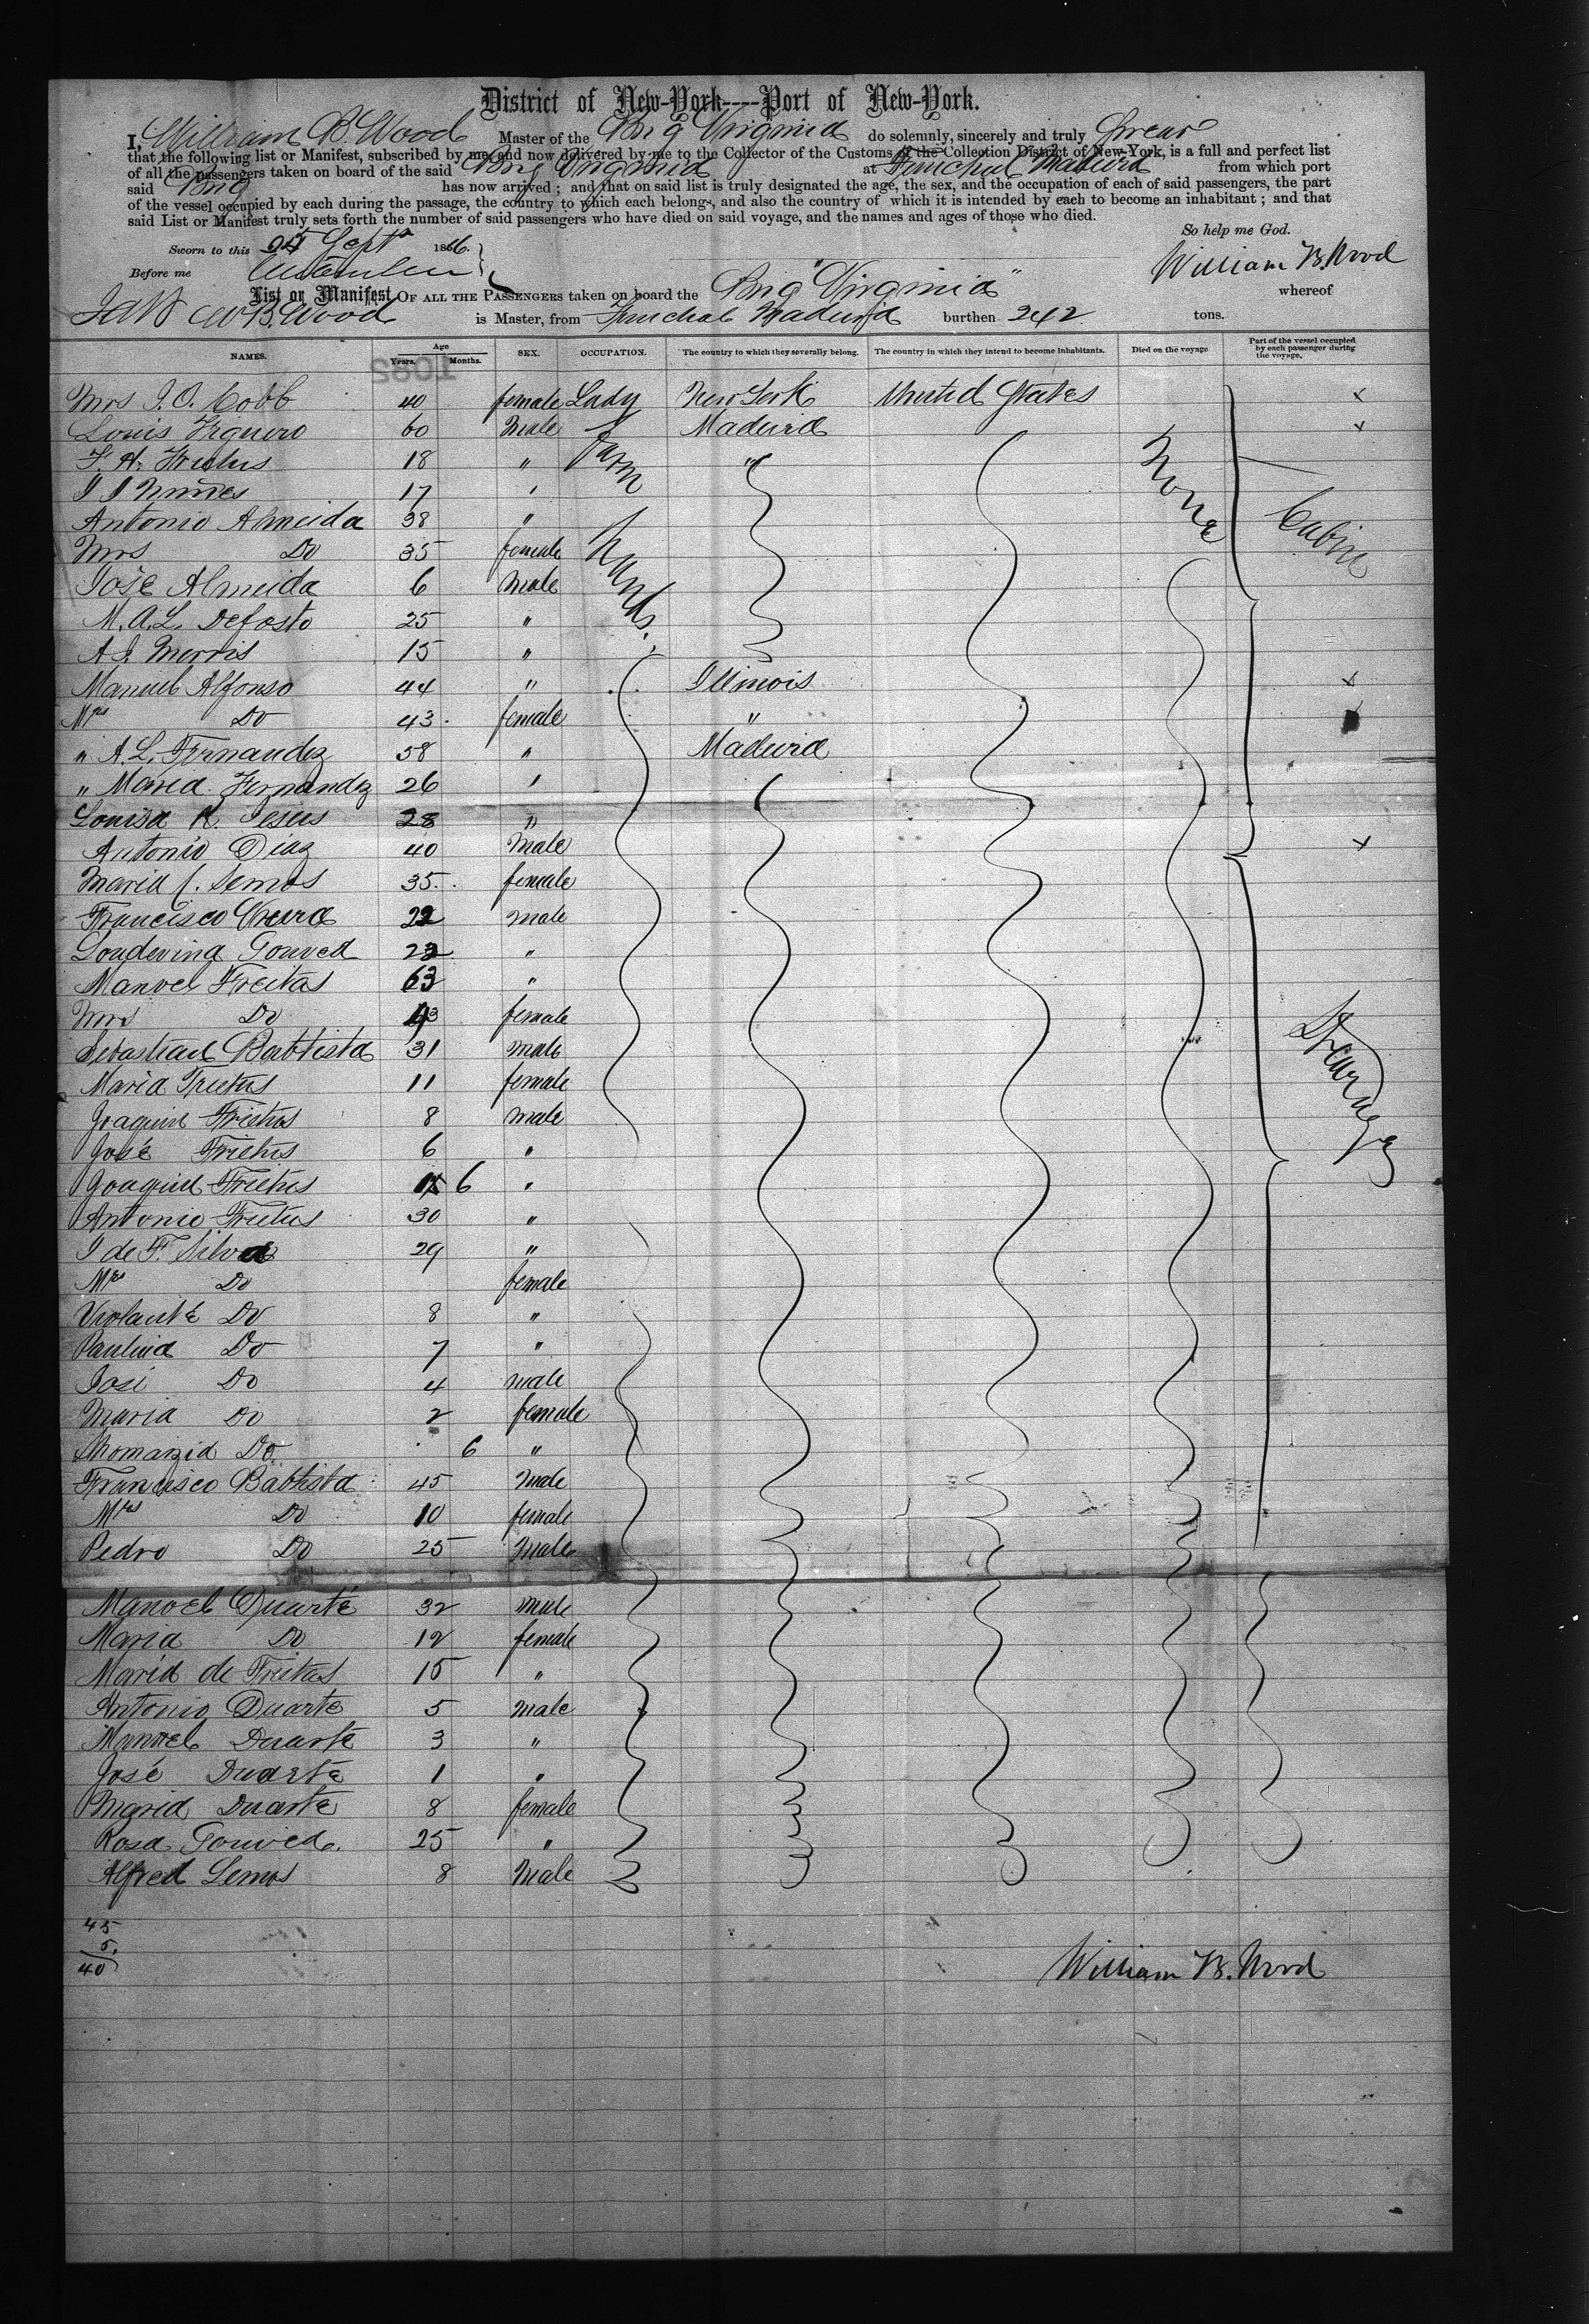 District of New-York----Port of New-York.
I, William B. Wood Master of the Brig Virginia do solemnly, sincerely and truly Swear
that the following list or Manifest, subscribed by me, and now delivered by me to the Collector of the Customs of the Collection District of New-York, is a full and perfect list
of all the passengers taken on board of the said Brig Virginia at Funchal Madeira from which port
said Brig has now arrived ; and that on said list is truly designated the age, the sex, and the occupation of each of said passengers, the part
of the vessel occupied by each during the passage, the country to which each belongs, and also the country of which it is intended by each to become an inhabitant ; and that
said List or Manifest truly sets forth the number of said passengers who have died on said voyage, and the names and ages of those who died.
So help me God.
Sworn to this 25 Sept 1866. William B. Wood
Before me
List or Manifest OF ALL THE PASSENGERS taken on board the Brig "Virginia" whereof
W B. Wood is Master, from Funchal Madeira burthen 242 tons.
NAMES. Age Years. Months. SEX. OCCUPATION. The country to which they severally belong. The country in which they intend to become inhabitants. Died on the voyage Part of the vessel occupied by each passenger during the voyage.
Mrs J. O. Cobb 40 female Lady New York United States x
Louis Figuero 60 male Farm Madeira None Cabin x
F. A. Freitus 18 " "
J J Nunes 17 "
Antonio Almeida 38 " hands.
Mrs Do 35 female
José Almeida 6 male
M. A. L. Defosto 25 "
A J. Morris 15 "
Manuel Alfonso 44 " Illinois x
Mrs Do 43 female "
" A. L. Fernandez 58 " Madeira
" Maria Fernandez 26 "
Louisa R. Jesus 28 "
Antonio Diaz 40 Male x
Maria C. Lemos 35 female
Francisco Vieira 22 male Stearage
Louderina Gouvea 23 "
Manoel Freitas 63 "
Mrs Do 43 female
Sebastiao Babtista 31 male
Maria Frietus 11 female
Joaquin Frietus 8 male
José Frietus 6 "
Joaquin Frietus 6 "
Antonio Frietus 30 "
J de F. Silva 29 "
Mrs Do female
Violante Do 8 "
Paulina Do 7 "
José Do 4 male
Maria Do 2 female
Thomazia Do. 6 "
Francisco Babtista 45 Male
Mrs Do 10 female
Pedro Do 25 Male
Manoel Duarte 32 male
Maria Do 12 female
Maria de Freitas 15 "
Antonio Duarte 5 male
Manoel Duarte 3 "
José Duarte 1 "
Maria Duarte 8 female
Rosa Gouvea. 25 "
Alfred Lemos 8 Male
45
5.
40
William B. Wood